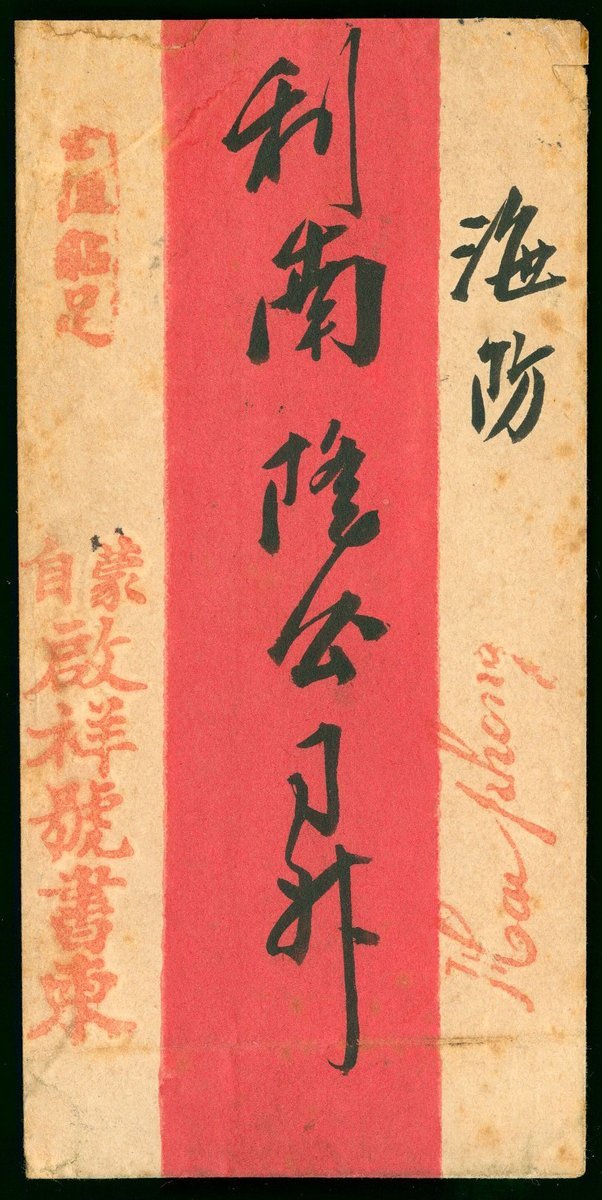 海防
Hai phong
利南隆公司升
蒙自
啟祥號書柬